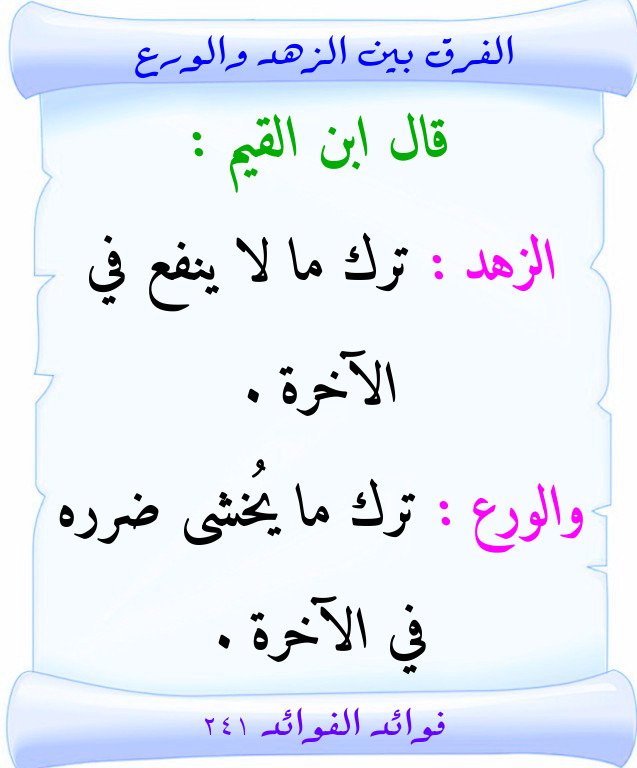 الفرق بين الزهد والورع
قال ابن القيم :
الزهد : ترك ما لا ينفع في
الآخرة .
والورع : ترك ما يُخشى ضرره
في الآخرة .
فوائد الفوائد ٢٤١